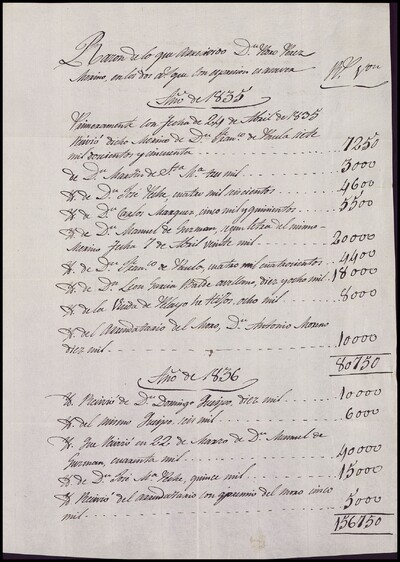 Razon de lo que
Merino, en los dos años que con expresion se
Año de 1835
Primeramente con fecha de 24 de Abril de 1835
Recivió dicho Merino de Dn. Franco. de Paula siete
mil doscientos y cincuenta 7250
de Dn. Martin de Sta. Ma. tres mil 3000
Yd. de Dn. José cuatro mil seiscientos 4600
Yd. de Dn. Carlos Marquez, cinco mil y quinientos 5500
Yd. de Dn. Manuel de Guzman, según letra del mismo
Merino fecha 7 de Abril veinte mil 20000
Yd. de Dn. Franco. de Paula, cuatro mil cuatrocientos 4400
Yd. de Dn. Leon Garcia diez y ocho mil 18000
Yd. de la Viuda de Pelayo he Hijos, ocho mil 8000
Yd. del Arrendatario del Dn. Antonio Moreno
diez mil 10000
80750
Año de 1836
Yd. Recivió de Dn. Domingo Queipo, diez mil 10000
Yd. del mismo Queipo, seis mil 6000
Yd. Que Recivió en 22 de Marzo de Dn. Manuel de
Guzman, cuarenta mil 40000
Yd. de Dn. José Ma. quince mil 15000
Yd. Recivió del arrendatario con premio del cinco
mil 5000
156750